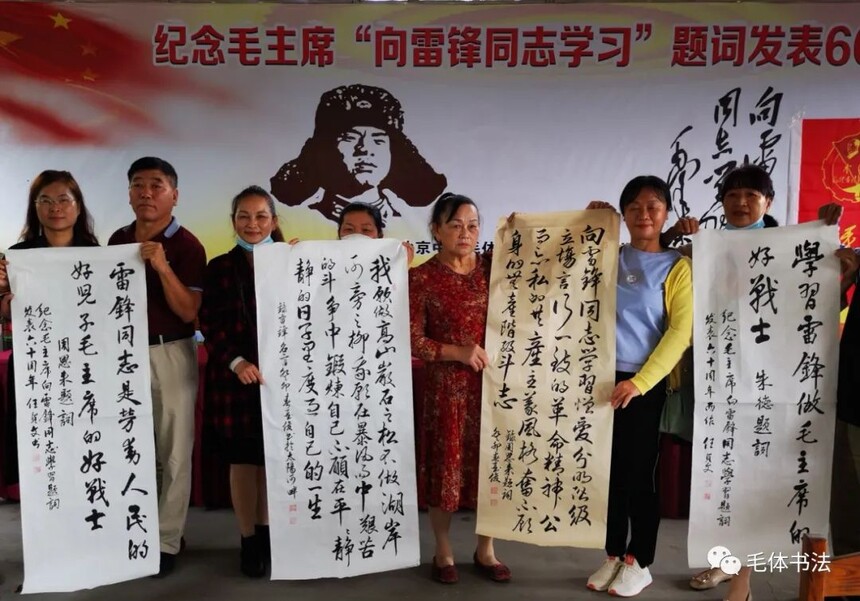 纪念毛主席“向雷锋同志学习”题词发表60
向雷
同志学
雷锋同志是劳动人民的
好儿子毛主席的好战士
周恩来题词
纪念毛主席向雷锋同志学习题词
发表六十周年 任贞文书
我愿做高山岩石之松不做湖岸
河旁之柳我愿在暴风雨中艰苦
的斗争中锻炼自己不愿在平平静
静的日子里度过自己的一生
向雷锋同志学习憎爱分明的阶级
立场言行一致的革命精神公
而忘私的共产主义风格奋不顾
身的无产阶级斗志
录周恩来题词
學習雷锋做毛主席的
好战士
朱德题词
纪念毛主席向雷锋同志學習题词
发表六十周年
任贞文
毛体书法